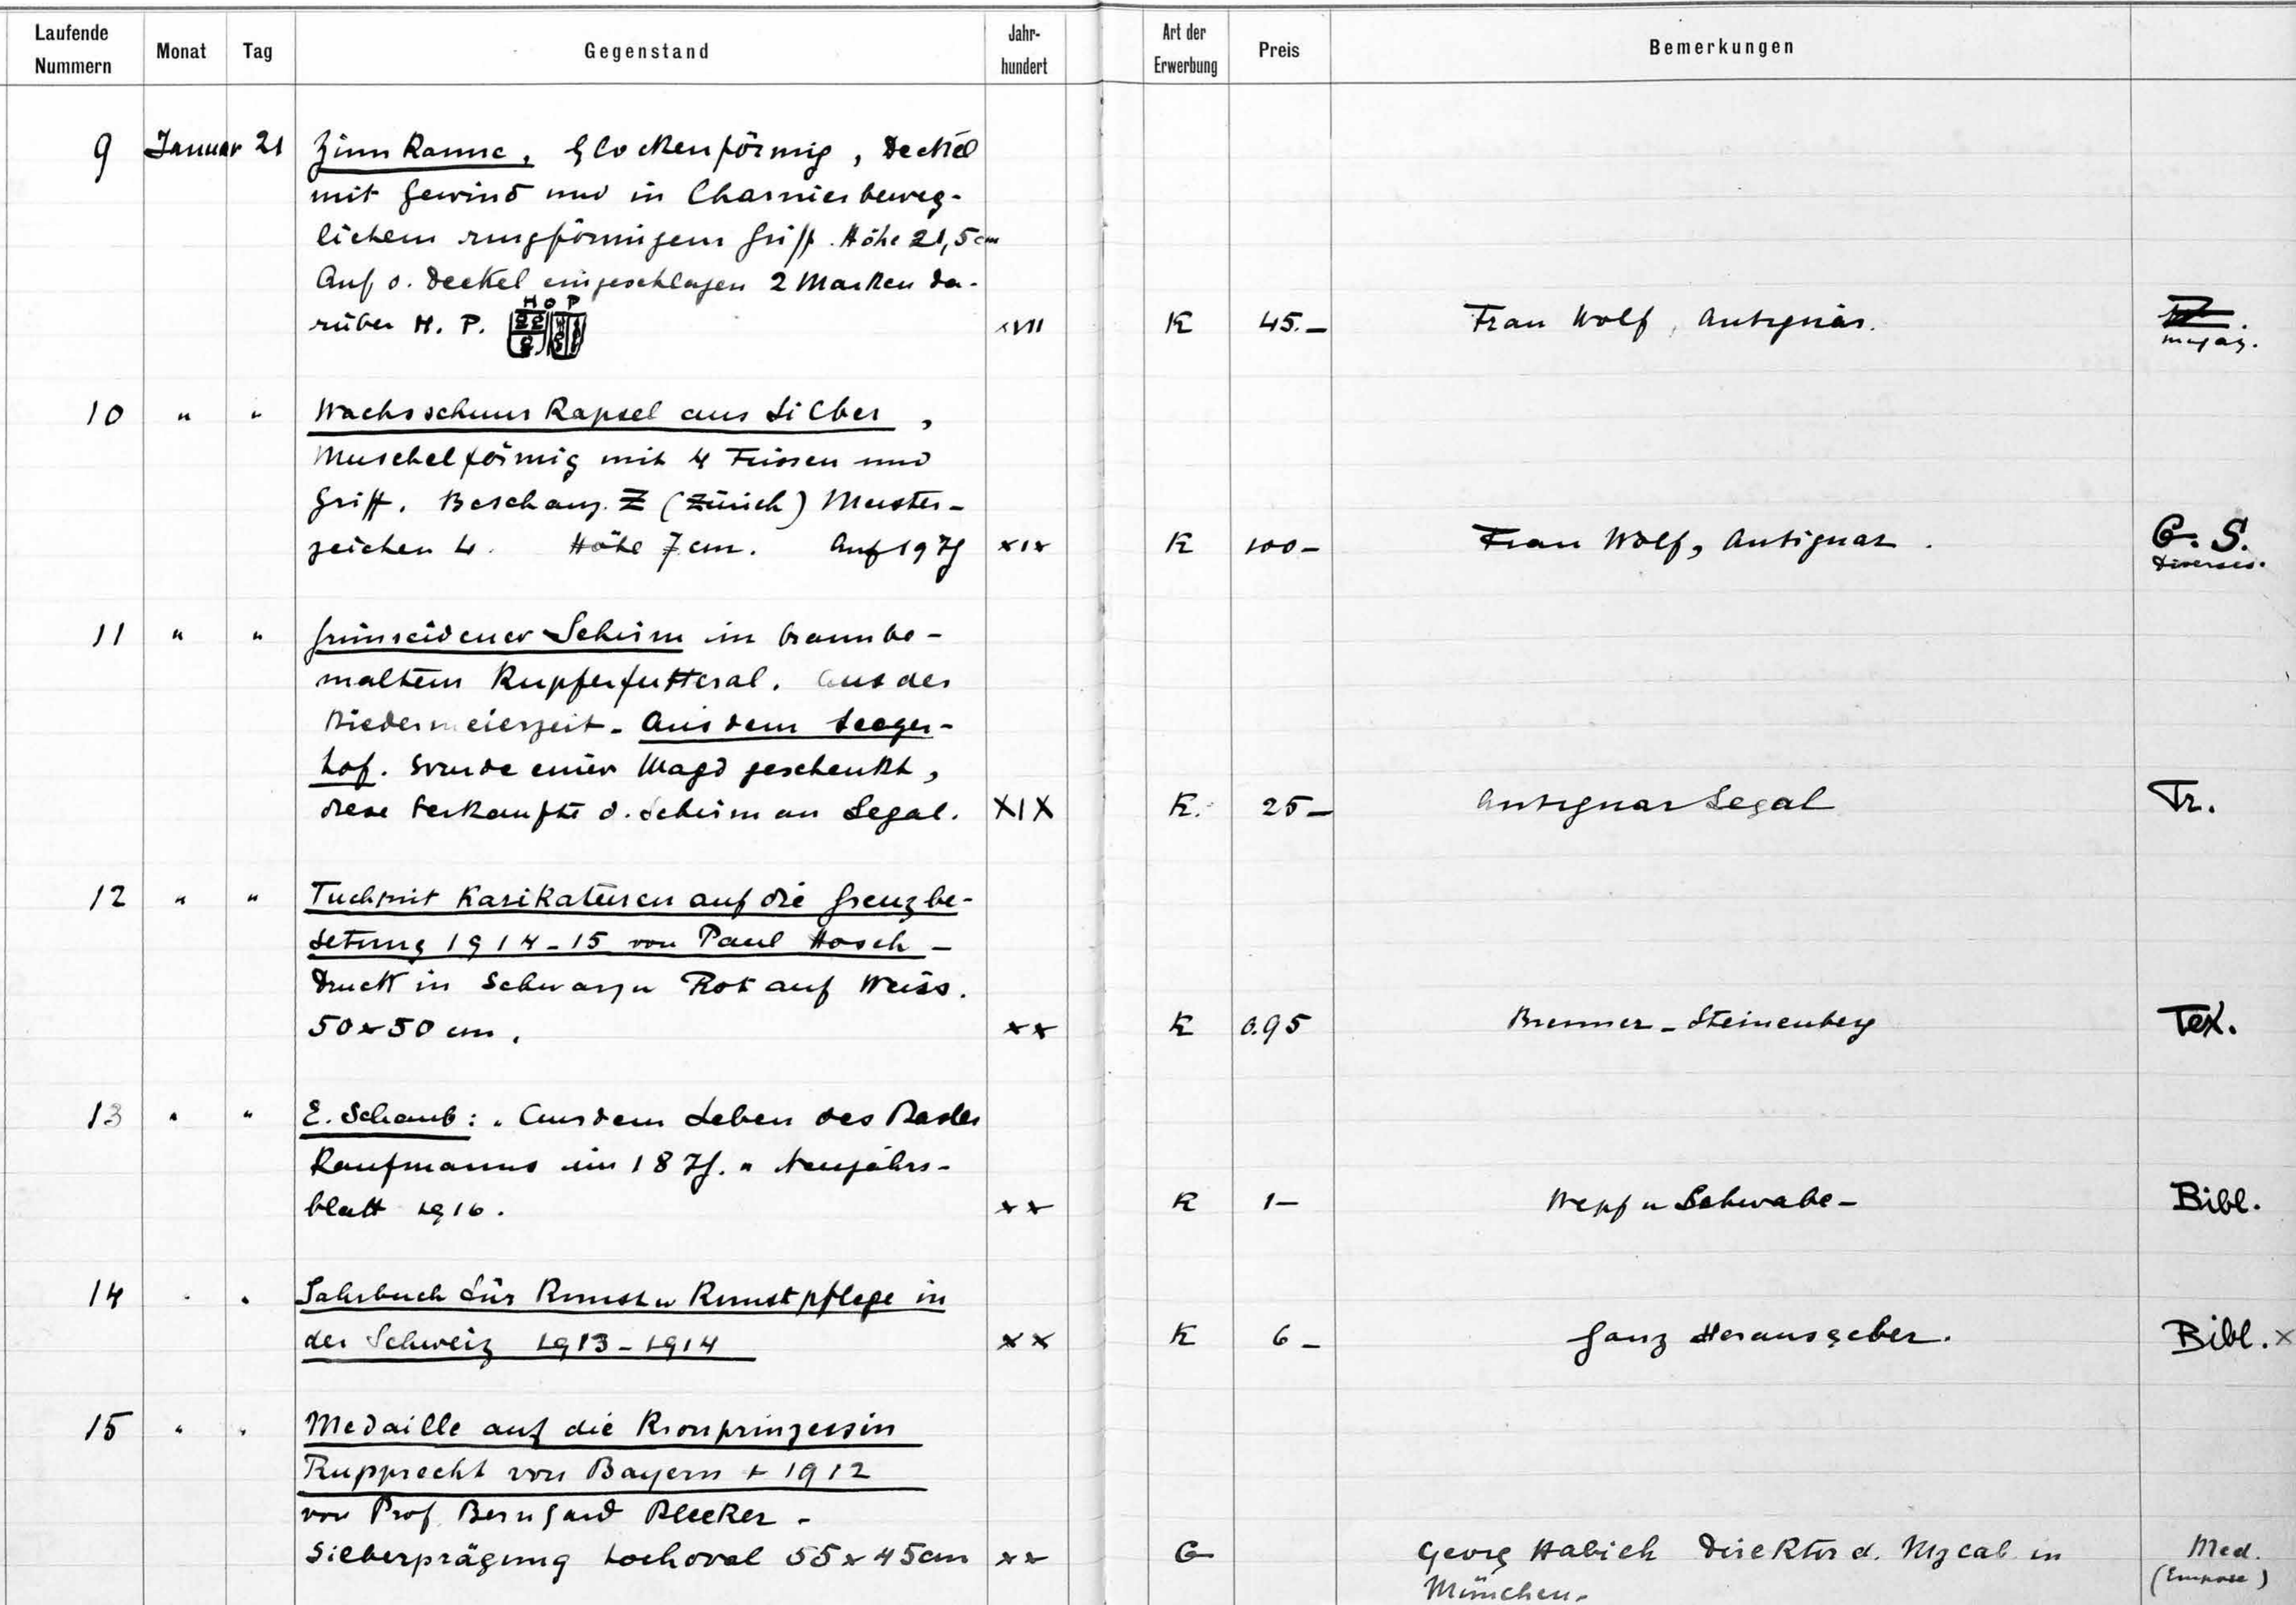 Laufende Nummern Monat Tag Gegenstand Jahr-hundert Art der Erwerbung Preis Bemerkungen
9 Januar 21 Zinn Kanne, Glockenförmig, Deckel
mit Gewind und in Charnier beweg-
lichem ringförmigem Griff. Höhe 21,5 cm
Auf d. Deckel eingeschlagen 2 Marken da-
H o P
rüber H. P. XVII K 45.— Frau Wolf, Antiquar.
magaz.
10 " " Wachsschnur Kapsel aus Silber,
Muschelförmig mit 4 Füssen und
Griff. Beschauz. Z (Zürich) Meister-
zeichen 4. Höhe 7 cm. Anf 19 Jh XIX K 100— Frau Wolf, Antiquar. G. S.
Diverses.
11 " " Grünseidener Schirm in braunbe-
maltem Kupferfutteral. Aus der
Biedermeierzeit. Aus dem Seeger-
hof. Wurde einer Magd geschenkt,
diese verkaufte d. Schirm an Segal. XIX K. 25— Antiquar Segal Tr.
12 " " Tuch mit Karikaturen auf die Grenzbe-
setzung 1914-15 von Paul Hosch —
Druck in Schwarz u Rot auf Weiss.
50x50 cm. XX K 0.95 Brenner - Steinenberg Tex.
13 " " E. Schaub: "Aus dem Leben des Basler
Kaufmanns im 18 Jh." Neujahrs-
blatt 1916. XX K 1— Wepf u Schwabe— Bibl.
14 " " Jahrbuch für Kunst u Kunstpflege in
der Schweiz 1913-1914 XX K 6— Ganz Herausgeber. Bibl. x
15 " " Medaille auf die Kronprinzessin
Rupprecht von Bayern + 1912
von Prof Bernhard Bleeker -
Silberprägung hochoval 55x45cm XX G Georg Habich Direktor d. Mzcab in Med.
München.